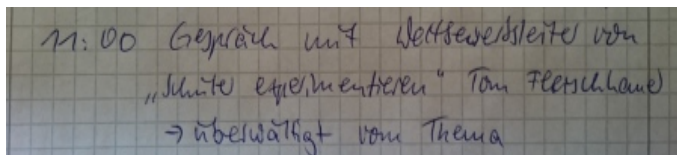 11:00 Gespräch mit Wettbewerbsleiter von
„Schüler experimentieren“ Tom
→ überwältigt vom Thema